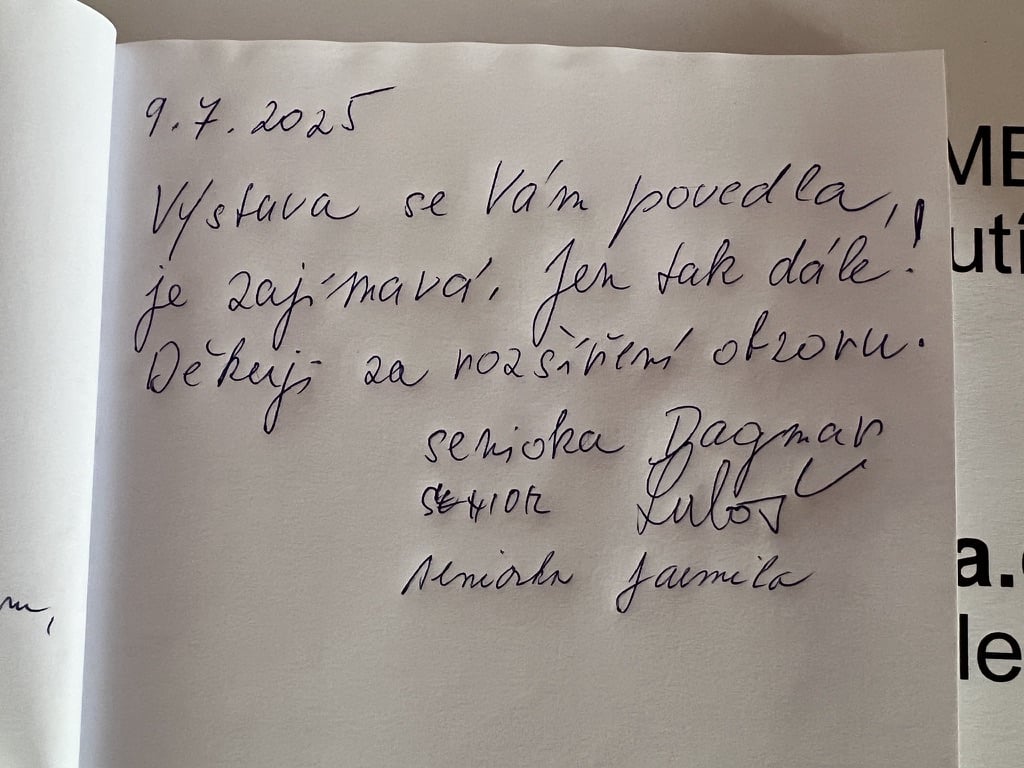 9.7.2025
Výstava se Vám povedla,
je zajímavá. Jen tak dále!
Děkuji za rozšíření obzoru.
seniorka Dagmar
SENIOR Luboš
seniorka Jarmila
ME
utí
a.
le